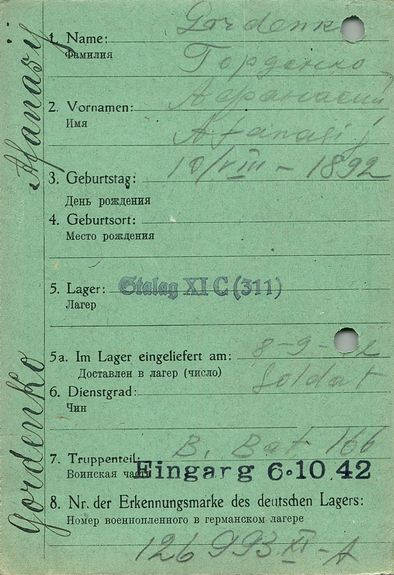 Gordenko Afanasy
1. Name: Gordenk
Фамилия
Горденко
2. Vornamen: Афанасий
Имя
Afanasij
3. Geburtstag: 10/VIII - 1892
День рождения
4. Geburtsort:
Место рождения
5. Lager: Stalag XI C (311)
Лагер
5a. Im Lager eingeliefert am: 8-9-
Доставлен в лагер (число)
6. Dienstgrad: Soldat
Чин
7. Truppenteil: B. Bat 166
Воинская части
Eingarg 6.10.42
8. Nr. der Erkennungsmarke des deutschen Lagers:
Номер военнопленного в германском лагере
126993 XI-A